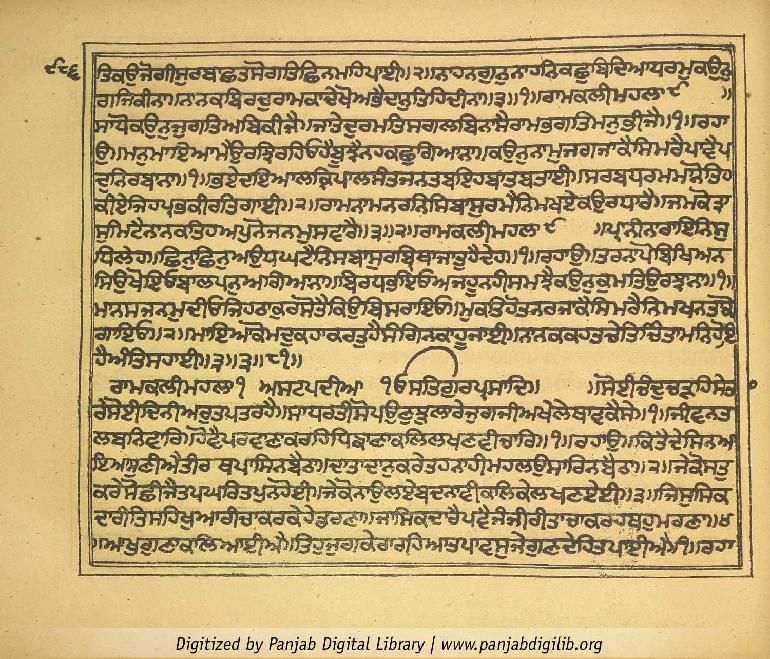 ੯੮੬
ਤਿਕਉਜੋਗੀਸੁਰਬਾਛਤਸੋਗਤਿਛਿਨਮਹਿਪਾਈ॥੨॥ਨਾਹਨਗੁਨੁਨਾਹਨਿਕਛੁਬਿਦਿਆਧਰਮੁਕਉਨੁ
ਗਜਿਕੀਨਾ॥ਨਾਨਕਬਿਰਦੁਰਾਮਕਾਦੇਖੋਅਭੈਦਾਨੁਤਿਹਿਦੀਨਾ॥੩॥੧॥ਰਾਮਕਲੀਮਹਲਾ੯॥
ਸਾਧੋਕਉਨੁਜੁਗਤਿਅਬਿਕੀਜੈ॥ਜਾਤੇਦੁਰਮਤਿਸਗਲਬਿਨਾਸੈਰਾਮਭਗਤਿਮਨੁਭੀਜੈ॥੧॥ਰਹਾ
ਉ॥ਮਨੁਮਾਇਆਮੈਉਰਝਿਰਹਿਓਹੈਬੂਝੈਨਹਕਛੁਗਿਆਨਾ॥ਕਉਨੁਨਾਮੁਜਗਜਾਕੈਸਿਮਰੈਪਾਵੈਪ
ਦੁਨਿਰਬਾਨਾ॥੧॥ਭਏਦਇਆਲਕ੍ਰਿਪਾਲਸੰਤਜਨਤਬਇਹਬਾਤਬਤਾਈ॥ਸਰਬਧਰਮਮਾਨੋਤਿਹ
ਕੀਏਜਿਹਪ੍ਰਭਕੀਰਤਿਗਾਈ॥੨॥ਰਾਮਨਾਮਨਰਨਿਸਿਬਾਸੁਰਮੈਨਿਮਖਏਕਉਰਧਾਰੈ॥ਜਮਕੋਤ੍ਰਾ
ਸੁਮਿਟੈਨਾਨਕਤਿਹਅਪੁਨੋਜਨਮੁਸਵਾਰੈ॥੩॥੨॥ਰਾਮਕਲੀਮਹਲਾ੯॥ਪ੍ਰਾਨੀਨਾਰਾਇਨਿਸੁ
ਧਿਲੇਹ॥ਛਿਨੁਛਿਨੁਅਉਧਘਟੈਨਿਸਬਾਸੁਰਬ੍ਰਿਥਾਜਾਤੁਹੈਦੇਹ॥੧॥ਰਹਾਉ॥ਤਰਨਾਪੋਬਿਖਿਅਨ
ਸਿਉਖੋਇਓਬਾਲਪਨੁਅਗਿਆਨਾ॥ਬਿਰਧਭਇਓਅਜਹੂਨਹੀਸਮਝੈਕਉਨੁਕੁਮਤਿਉਰਝਾਨਾ॥੧॥
ਮਾਨਸਜਨਮੁਦੀਓਜਿਹਠਾਕੁਰਸੋਤੈਕਿਉਬਿਸਰਾਇਓ॥ਮੁਕਤਿਹੋਤਨਰਜਾਕੈਸਿਮਰੈਨਿਮਖਨਤਾਕੋ
ਗਾਇਓ॥੨॥ਮਾਇਆਕੋਮਦੁਕਹਾਕਰਤੁਹੈਸੰਗਿਨਕਾਹੂਜਾਈ॥ਨਾਨਕਕਹਤਚੇਤਿਚਿੰਤਾਮਨਿਹੋਇ
ਹੈਅੰਤਿਸਹਾਈ॥੩॥੩॥੮੧॥
ਰਾਮਕਲੀਮਹਲਾ੧ ਅਸਟਪਦੀਆ ੴਸਤਿਗੁਰਪ੍ਰਸਾਦਿ॥ ॥ਸੋਈਚੰਦੁਚੜਹਿਸੇਤਾ
ਰੇਸੋਈਦਿਨੀਅਰੁਤਪਤਰਹੈ॥ਸਾਧਰਤੀਸੋਪਉਣੁਝੁਲਾਰੇਜੁਗਜੀਅਖੇਲੇਥਾਵਕੈਸੇ॥੧॥ਜੀਵਨਤ
ਲਬਨਿਵਾਰਿ॥ਹੋਵੈਪਰਵਾਣਾਕਰਹਿਧਿਙਾਣਾਕਲਿਲਖਣਵੀਚਾਰਿ॥੧॥ਰਹਾਉ॥ਕਿਤੈਦੇਸਿਨਆ
ਇਆਸੁਣੀਐਤੀਰਥਪਾਸਿਨਬੈਠਾ॥ਦਾਤਾਦਾਨੁਕਰੇਤਹਨਾਹੀਮਹਲਉਸਾਰਿਨਬੈਠਾ॥੨॥ਜੇਕੋਸਤੁ
ਕਰੇਸੋਛੀਜੈਤਪਘਰਿਤਪੁਨਹੋਈ॥ਜੇਕੋਨਾਉਲਏਬਦਨਾਵੀਕਲਿਕੇਲਖਣਏਈ॥੩॥ਜਿਸੁਸਿਕ
ਦਾਰੀਤਿਸਹਿਖੁਆਰੀਚਾਕਰਕੇਹੇਡਰਣਾ॥ਜਾਸਿਕਦਾਰੈਪਵੈਜੰਜੀਰੀਤਾਚਾਕਰਹਥਹੁਮਰਣਾ॥੪
॥ਆਖੁਗੁਣਾਕਲਿਆਈਐ॥ਤਿਹੁਜੁਗਕੇਰਾਰਹਿਆਤਪਾਵਸੁਜੇਗੁਣਦੇਹਿਤਪਾਈਐ॥੧॥ਰਹਾ
Digitized by Panjab Digital Library | www.panjabdigilib.org